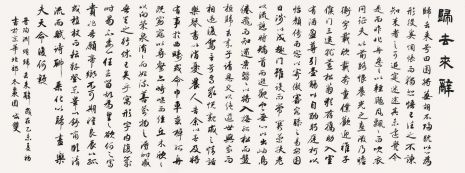 歸去來辭
歸去來兮田園將蕪胡不歸既以心為
形役奚惆悵而獨悲悟已往之不諫
知來者之可追實迷途其未遠覺今
是而昨非舟遙遙以輕颺風飄飄而吹衣
問征夫以前路恨晨光之熹微乃瞻
衡宇載欣載奔僮僕歡迎稚子
候門三徑就荒松菊猶存攜幼入室
有酒盈樽引壺觴以自酌眄庭柯以
怡顏倚南窗以寄傲審容膝之易安園
日涉以成趣門雖設而常關策扶老
以流憩時矯首而遐觀雲無心以出岫鳥
倦飛而知還景翳翳以將入撫孤松而盤
桓歸去來兮請息交以絕遊世與我而
相違復駕言兮焉求悅親戚之情話
樂琴書以消憂農人告余以春及將
有事於西疇或命巾車或棹孤舟
既窈窕以尋壑亦崎嶇而經丘木欣欣
以向榮泉涓涓而始流善萬物之得時感
吾生之行休已矣乎寓形宇內復幾
時曷不委心任去留胡為乎遑遑欲何之富
貴非吾願帝鄉不可期懷良辰以孤往
或植杖而耘耔登東皋以舒嘯臨清
流而賦詩聊乘化以歸盡樂
夫天命復奚疑
晉陶淵明歸去來辭